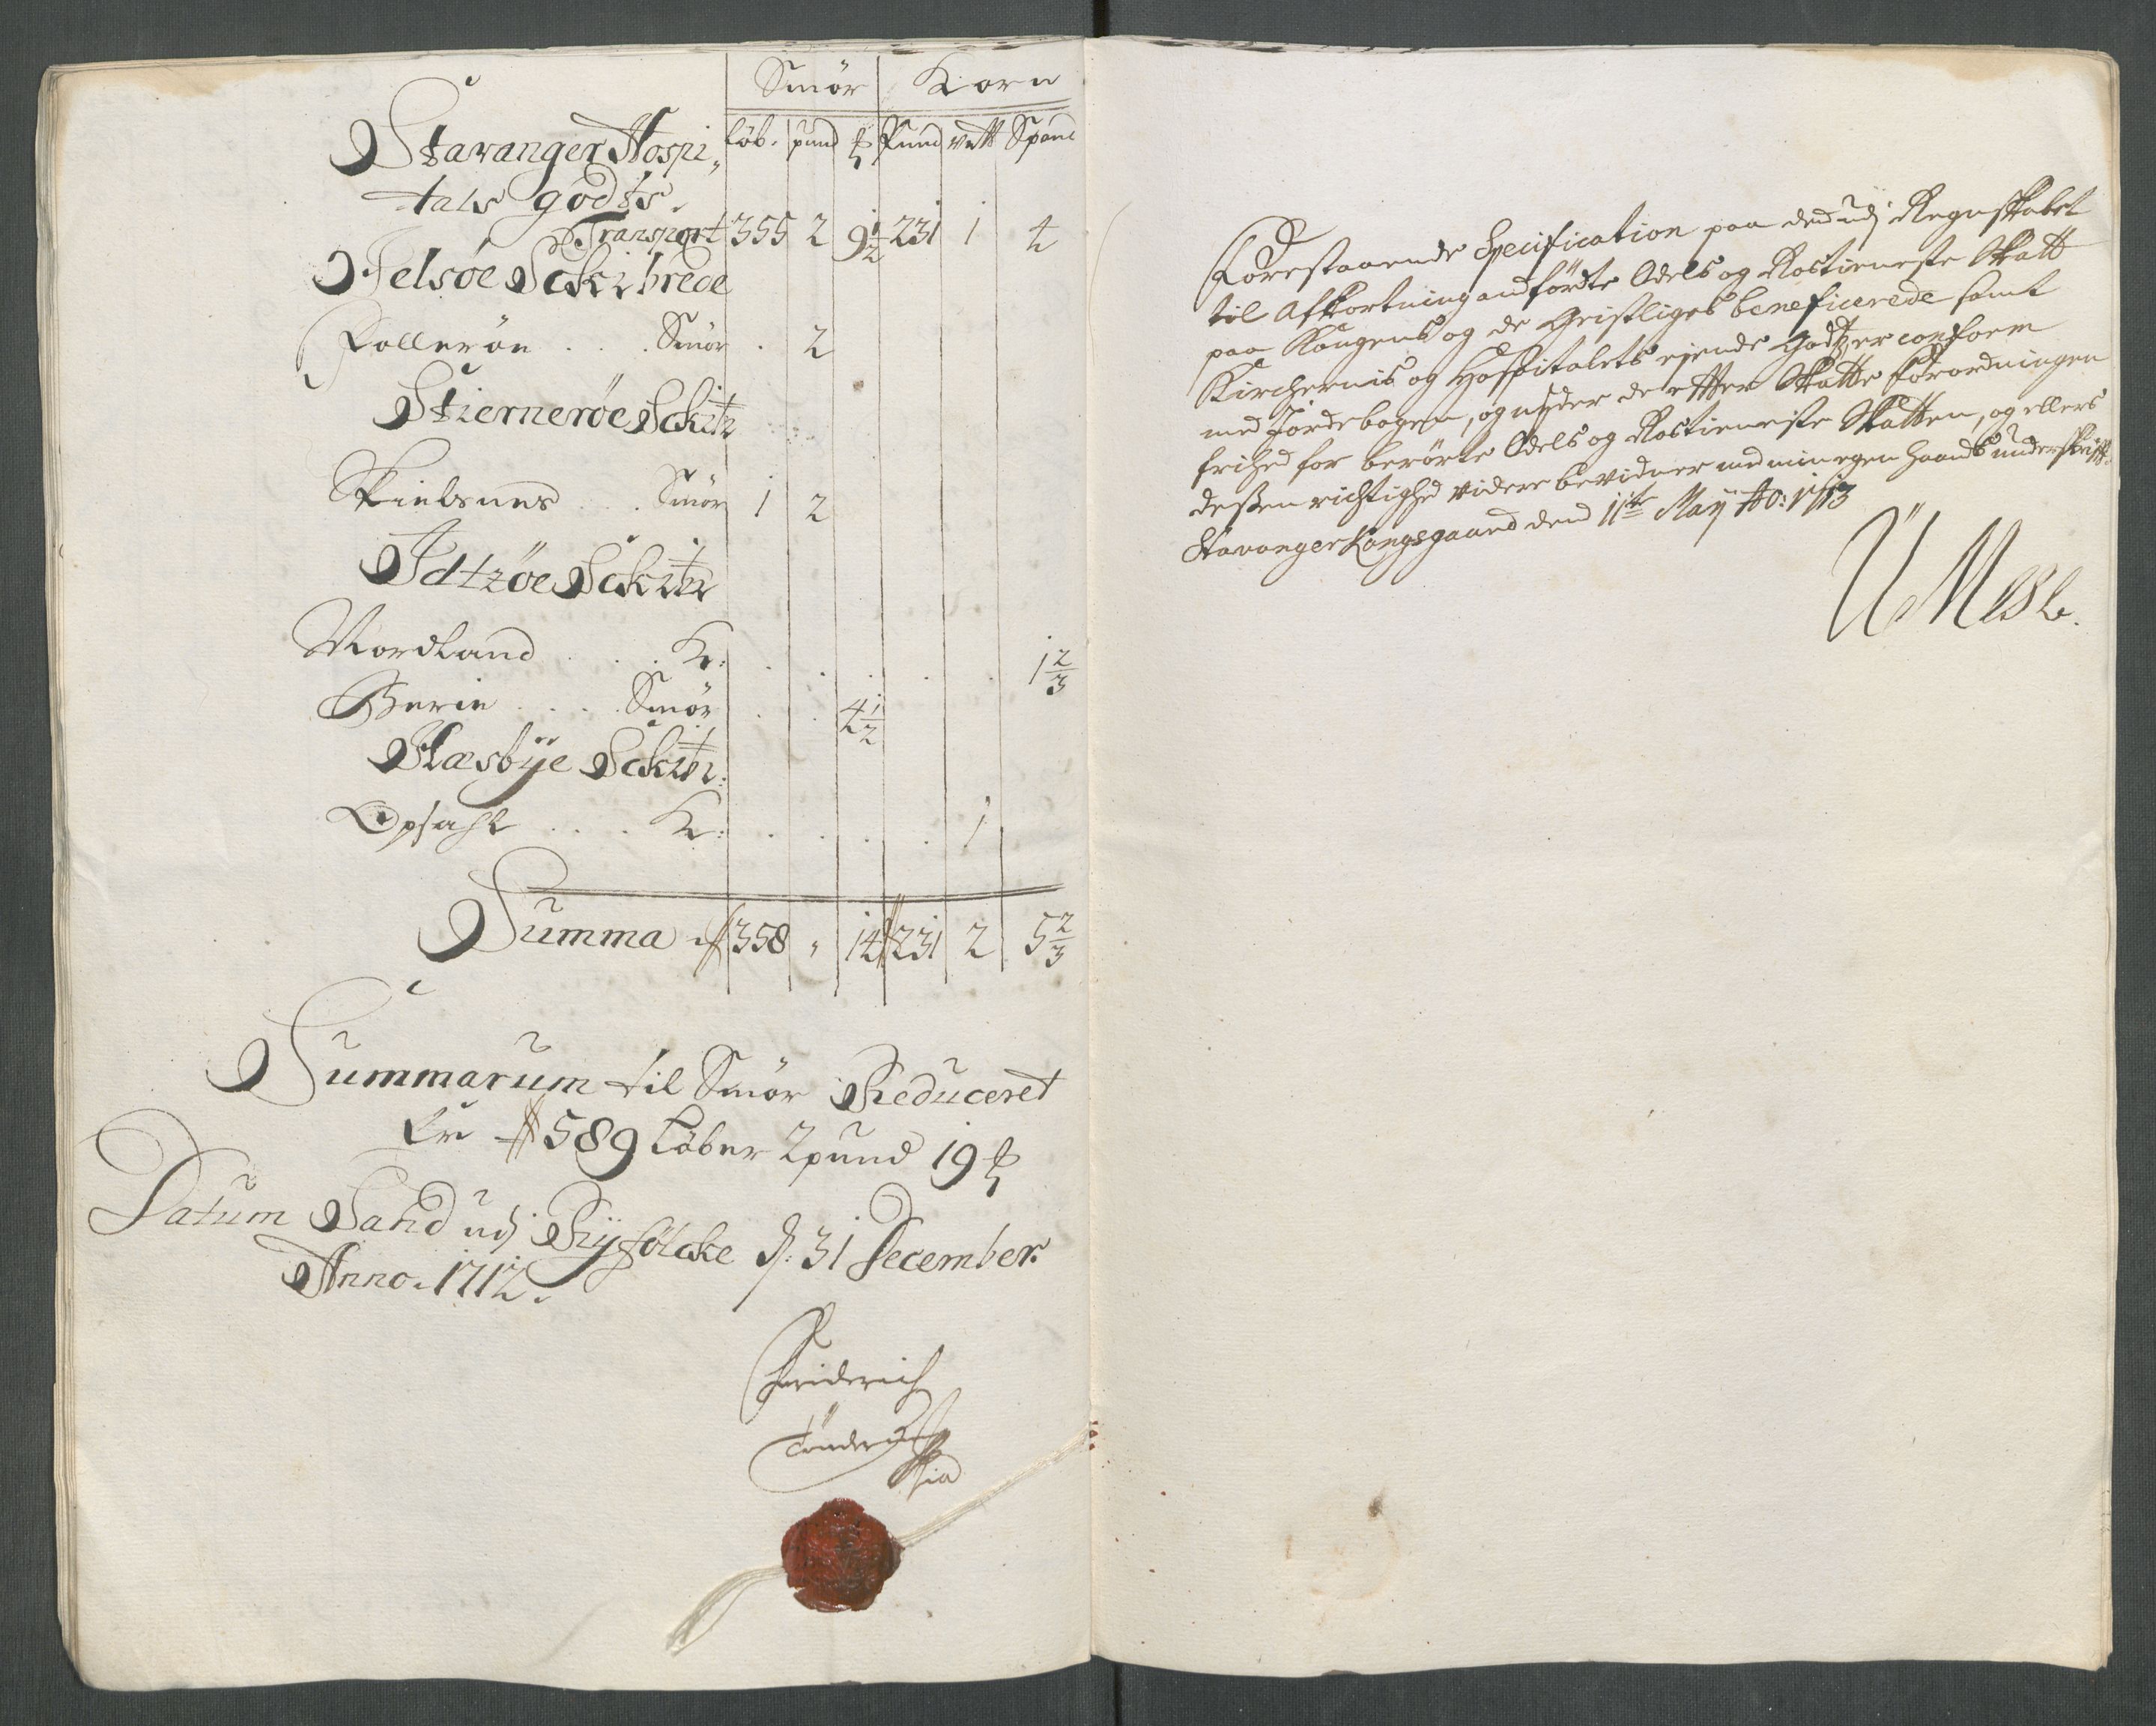 Smör Korn
Stavanger Hospi„ Løb. pund ℔ Pund vett Spand
tals godts.
Transport 355 2 9 1/2 231 1 4
Jelsøe Schibrede
Follerøe . . . Smör . 2
Stiernerøe Schibr
Skielsnes . . . Smör 1 2
Idtzøe Schibr
Nordland . . . K: . . . . . 1 2/3
Berie . . . Smör . . 4 1/2
Hæsbÿe Schibr:
Opsahl . . . . K: . . . . 1
Summa 358 „ 14 231 2 5 2/3
Summarum til Smör Reduceret
Er 589 Løber 2 pund 19 ℔
Datum Sand udj Rÿfølcke d: 31 December
Anno. 1712.
Friderich
Tönder
Forestaaende Specification paa ded udj Regnskabet
til Afkortning andførdte Odels og Rostieneste Skatt
paa Kongens og de Geistliges beneficerede samt
Kirchernis og Hospitalets ejende Godtzer conform
med Jordebogen, og nyder de efter Skatte forordningen
frihed for berørte Odels og Rostieneste Skatten, og ellers
dessen richtighed videre bevidner med min egen haands underskrift.
Stavanger Kongsgaard dend 11te Maÿ Ao: 1713